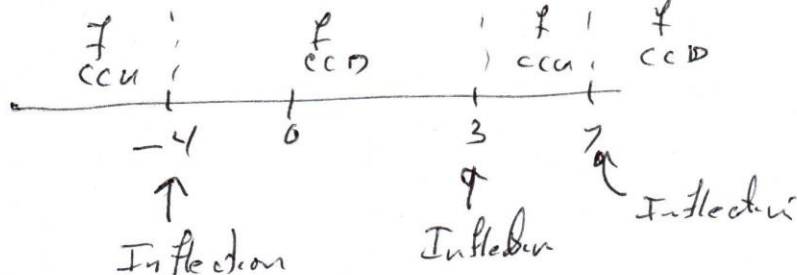 f f f f
CCU CCD CCU CCD
-4 0 3 7
Inflection Inflection Inflection